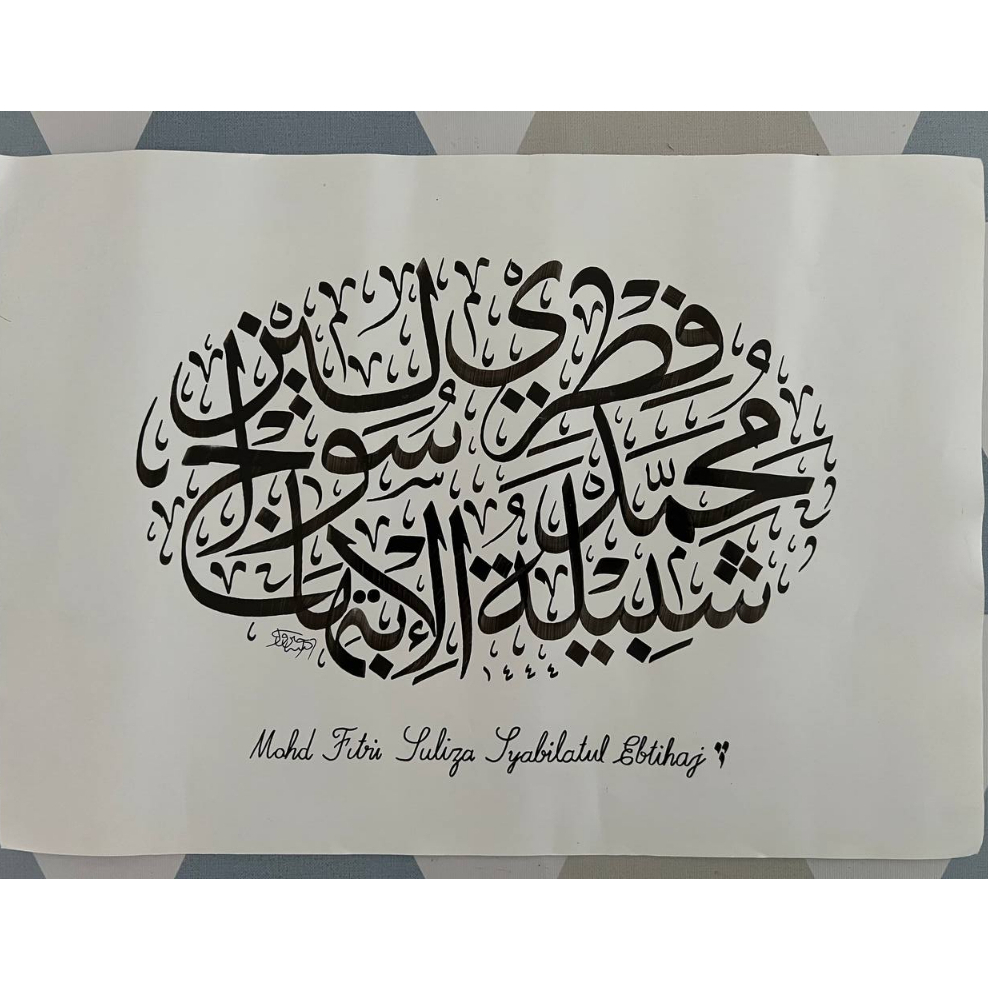 محمد فطري
سوليزا
شبيلة الإبتهاج
١٤٤٤
Mohd Fitri Suliza Syabilatul Ebtihaj